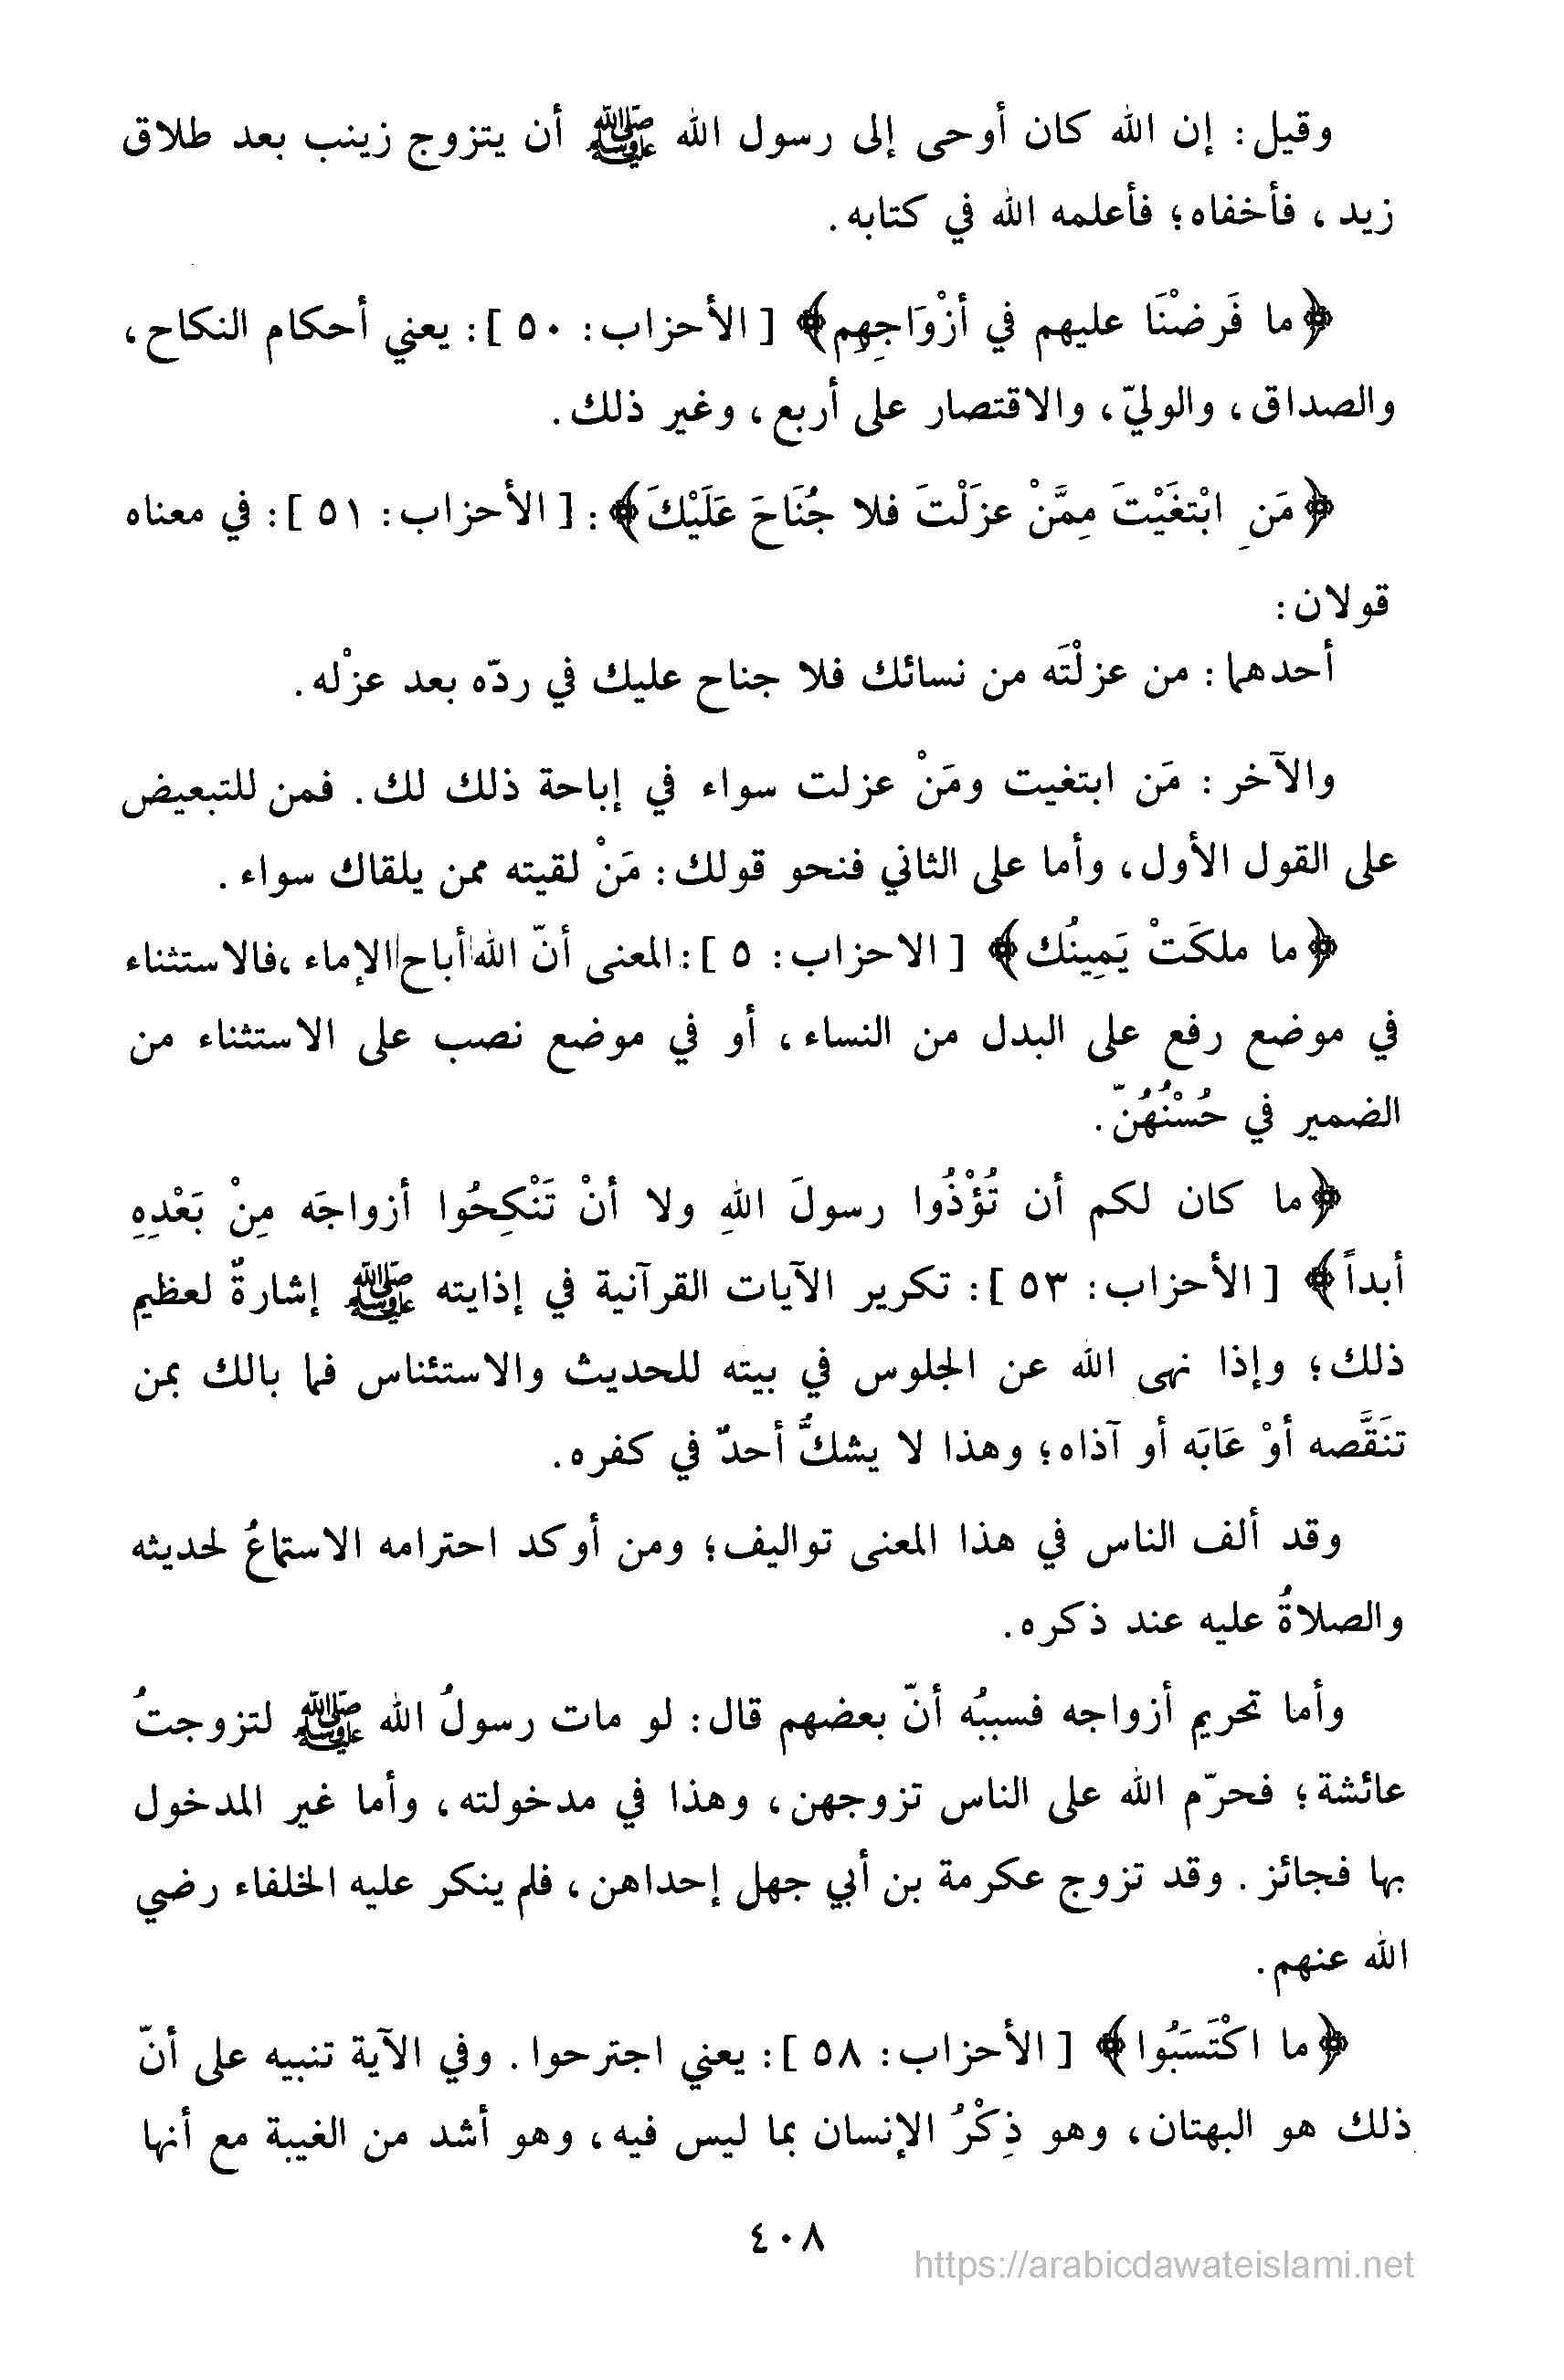 وقيل: إن الله كان أوحى إلى رسول الله ﷺ أن يتزوج زينب بعد طلاق
زيد، فأخفاه؛ فأعلمه الله في كتابه.
﴿ما فَرضْنَا عليهم في أزْوَاجِهِم﴾ [الأحزاب: ٥٠]: يعني أحكام النكاح،
والصداق، والوليّ، والاقتصار على أربع، وغير ذلك.
﴿مَنِ ابْتغَيْتَ مِمَّنْ عزَلْتَ فلا جُنَاحَ عَلَيْكَ﴾: [الأحزاب: ٥١]: في معناه
قولان:
أحدهما: من عزلْتَه من نسائك فلا جناح عليك في ردّه بعد عزْله.
والآخر: مَن ابتغيت ومَنْ عزلت سواء في إباحة ذلك لك. فمن للتبعيض
على القول الأول، وأما على الثاني فنحو قولك: مَنْ لقيته ممن يلقاك سواء.
﴿ما ملكَتْ يَمِينُك﴾ [الاحزاب: ٥]: المعنى أنّ الله أباح الإماء، فالاستثناء
في موضع رفع على البدل من النساء، أو في موضع نصب على الاستثناء من
الضمير في حُسْنُهُنّ.
﴿ما كان لكم أن تُؤْذُوا رسولَ اللهِ ولا أنْ تَنْكِحُوا أزواجَه مِنْ بَعْدِهِ
أبداً﴾ [الأحزاب: ٥٣]: تكرير الآيات القرآنية في إذايته ﷺ إشارةٌ لعظيم
ذلك؛ وإذا نهى الله عن الجلوس في بيته للحديث والاستئناس فما بالك بمن
تنَقَّصه أوْ عَابَه أو آذاه؛ وهذا لا يشكُّ أحدٌ في كفره.
وقد ألف الناس في هذا المعنى تواليف؛ ومن أوكد احترامه الاستماعُ لحديثه
والصلاةُ عليه عند ذكره.
وأما تحريم أزواجه فسببُه أنّ بعضهم قال: لو مات رسولُ الله ﷺ لتزوجتُ
عائشة؛ فحرّم الله على الناس تزوجهن، وهذا في مدخولته، وأما غير المدخول
بها فجائز. وقد تزوج عكرمة بن أبي جهل إحداهن، فلم ينكر عليه الخلفاء رضي
الله عنهم.
﴿ما اكْتَسَبُوا﴾ [الأحزاب: ٥٨]: يعني اجترحوا. وفي الآية تنبيه على أنّ
ذلك هو البهتان، وهو ذِكْرُ الإنسان بما ليس فيه، وهو أشد من الغيبة مع أنها
٤٠٨
https://arabicdawateislami.net